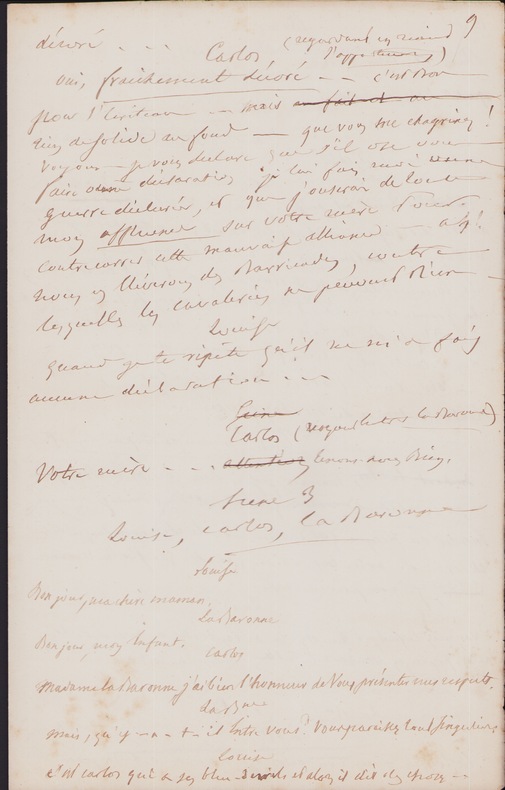 9
décoré . . . Carlos (regardant en riant
l'appartement)
oui, fraichement décoré — c'est bon
pour l'écriteau — mais
rien de solide au fond — que vous me chagrinez!
voyons — je vous déclare que s'il ose vous
faire une déclaration, je lui fais moi une
guerre déclarée, et que j'userai de toute
mon affluence sur votre mère pour
contrecarrer cette mauvaise alliance — ah!
nous y élèverons des Barricades, contre
lesquelles les cavaleries ne peuvent rien —
Louise
quand je te répète qu'il ne m'a fait
aucune déclaration . . .
Carlos (voyant entrer la Baronne)
Votre mère . . . attention tenons-nous bien.
Scene 3
Louise, Carlos, la Baronne
Louise
Bonjour, ma chère maman.
La Baronne
Bonjour, mon Enfant.
Carlos
Madame la Baronne j'ai bien l'honneur de vous présenter mes respects.
La Bnne
mais, qu'y-a-t-il entre vous? Vous paraissez tout singuliers
Louise
c'est Carlos qui a ses bleu- et alors il dit des choses --